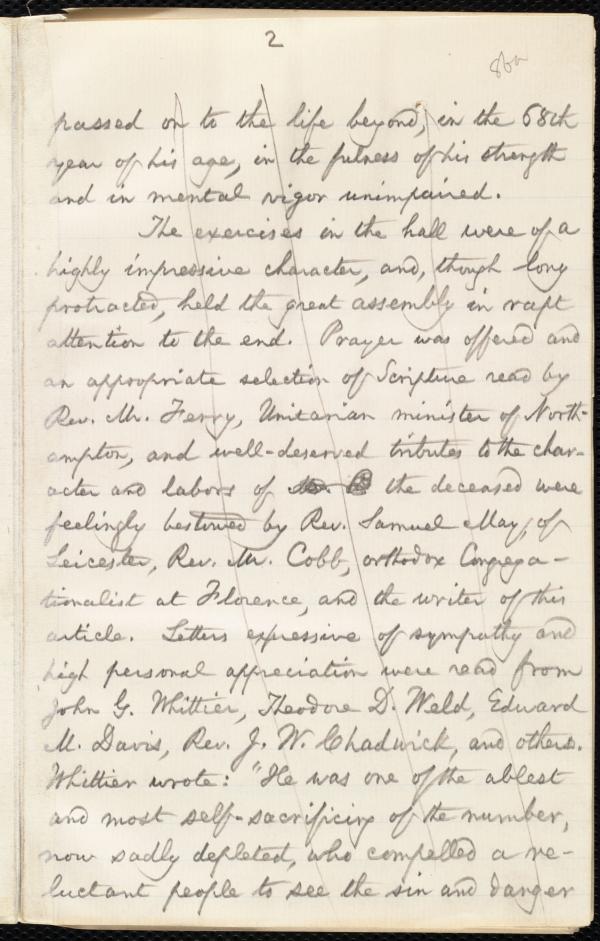 2
86a
passed on to the life beyond, in the 68th
year of his age, in the fulness of his strength
and in mental vigor unimpaired.
The exercises in the hall were of a
highly impressive character, and, though long
protracted, held the great assembly in rapt
attention to the end. Prayer was offered and
an appropriate selection of Scripture read by
Rev. Mr. Ferry, Unitarian minister of North-
ampton, and well-deserved tributes to the char-
acter and labors of the deceased were
feelingly bestowed by Rev. Samuel May, of
Leicester, Rev. Mr. Cobb, orthodox Congrega-
tionalist at Florence, and the writer of this
article. Letters expressive of sympathy and
high personal appreciation were read from
John G. Whittier, Theodore D. Weld, Edward
M. Davis, Rev. J. W. Chadwick, and others.
Whittier wrote: "He was one of the ablest
and most self-sacrificing of the number,
now sadly depleted, who compelled a re-
luctant people to see the sin and danger